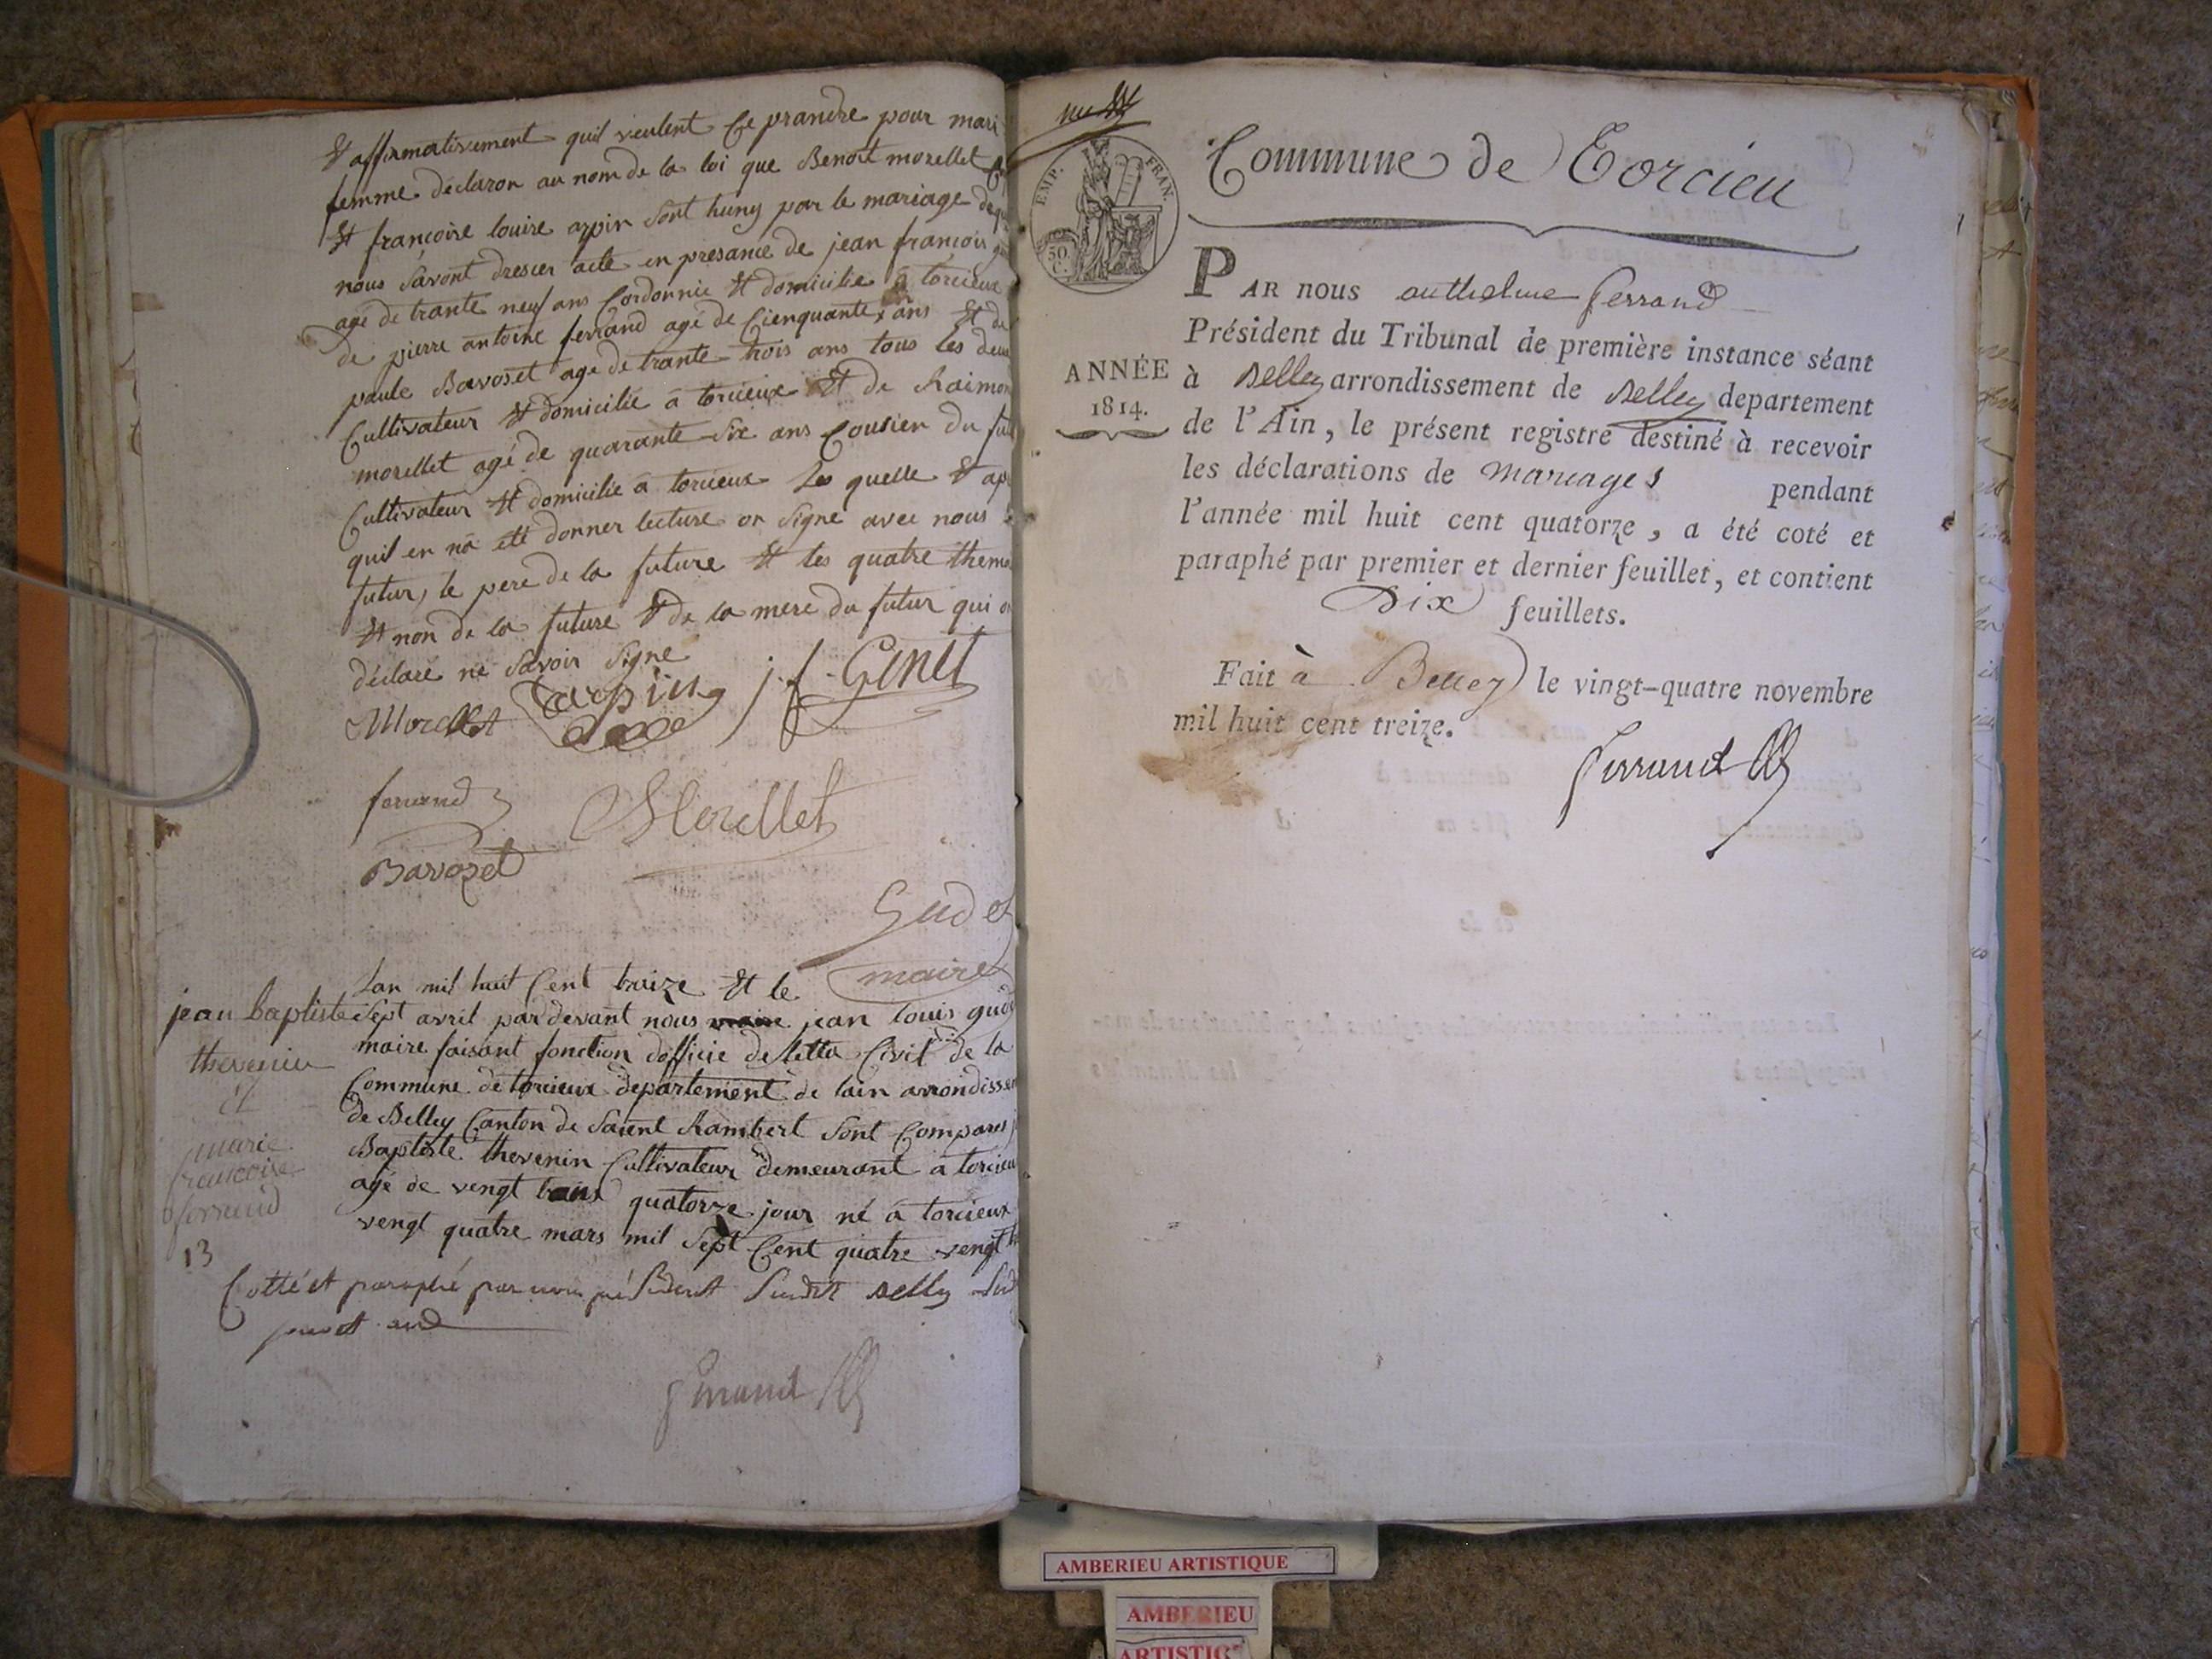 Et affirmativement quil veulent Ce prandre pour mari
femme declaron au nom de la loi que Benoit morellet
Et francoise louise arpin sont huny par le mariage de
nous savont dresser acte en presance de jean francois
agé de trante neuf ans Cordonnie Et domicilie a torcieux
de pierre antoine ferrand agé de Cienquante ans Et de
paule Bavozet agé de trante trois ans tous les deux
Cultivateur Et domicilié a torcieux Et de Raimon
morellet agé de quarante six ans Cousien du fut
Cultivateur Et domicilie a torcieux Les quelle Et ap
quil en na eté donner lecture on signe avec nous
futur, le pere de la future Et les quatre themo
Et non de la future Et de la mere du futur qui on
déclaré ne savoir signe
Morellet arpin j.f. Genet
ferrand Morellet
Bavozet
Gudet
maire
Lan mil huit Cent traize Et le
jean baptiste
thevenin
et
marie
francoise
ferrand
13
Sept avril par devant nous jean louis gude
maire faisant fonction dofficie de letta Civil de la
Commune de torcieux departement de lain arrondissem
de Belley Canton de Saient Rambert sont Compares j
Baptiste thevenin Cultivateur demeurant a torcieu
agé de vengt trans quatorze jour né a torcieux
vengt quatre mars mil Sept Cent quatre vengt
Cotté et paraphé par nous président Susdit Belley
Ferrand
Commune de Torcieu
EMP. FRAN.
50
C.
PAR nous anthelme ferrand
Président du Tribunal de première instance séant
ANNÉE
1814.
à Belley arrondissement de Belley departement
de l'Ain, le présent registre destiné à recevoir
les déclarations de mariages pendant
l'année mil huit cent quatorze, a été coté et
paraphé par premier et dernier feuillet, et contient
Dix feuillets.
Fait à Belley le vingt-quatre novembre
mil huit cent treize.
Ferrand
AMBERIEU ARTISTIQUE
AMBERIEU
ARTISTIQ